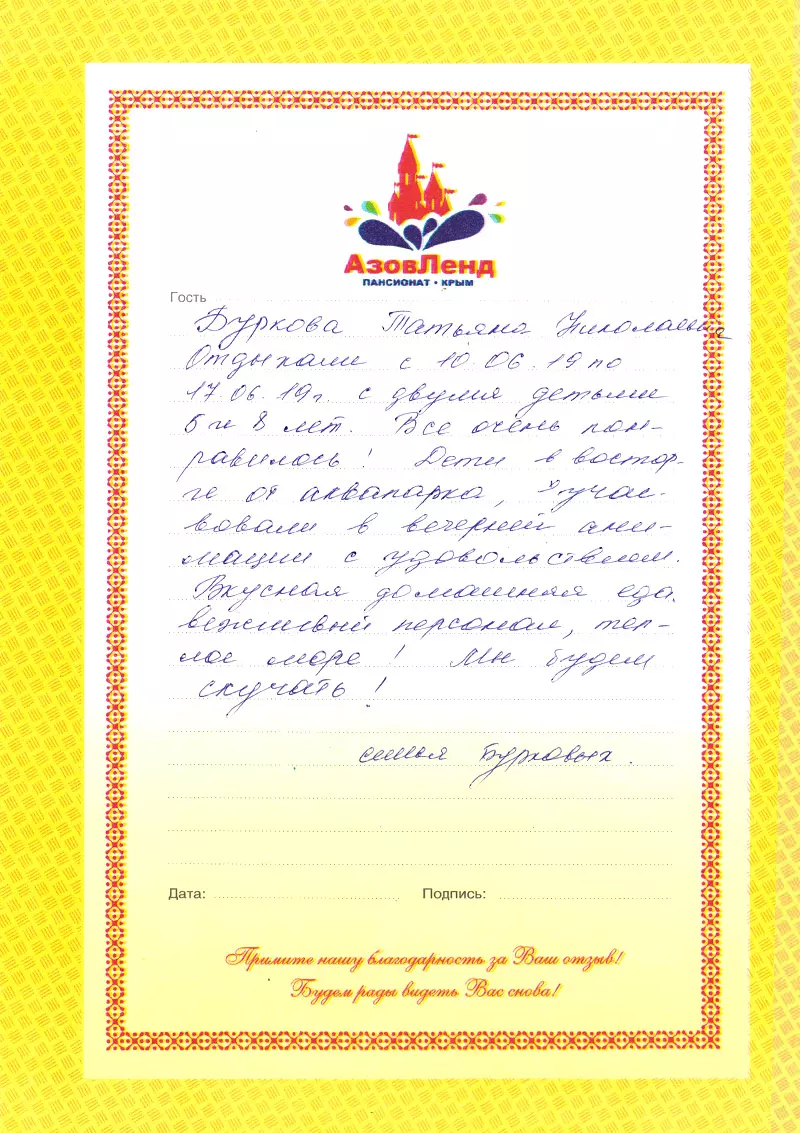 АзовЛенд
ПАНСИОНАТ • КРЫМ
Гость
Буркова Татьяна Николаевна
Отдыхали с 10.06.19 по
17.06.19г. с двумя детьми
5 и 8 лет. Все очень пон-
равилось! Дети в востор-
ге от аквапарка, учас-
вовали в вечерней ани-
мации с удовольствием.
Вкусная домашняя еда,
вежливый персонал, теп-
лое море! Мы будем
скучать!
семья Бурковых.
Дата:
Подпись:
Примите нашу благодарность за Ваш отзыв!
Будем рады видеть Вас снова!